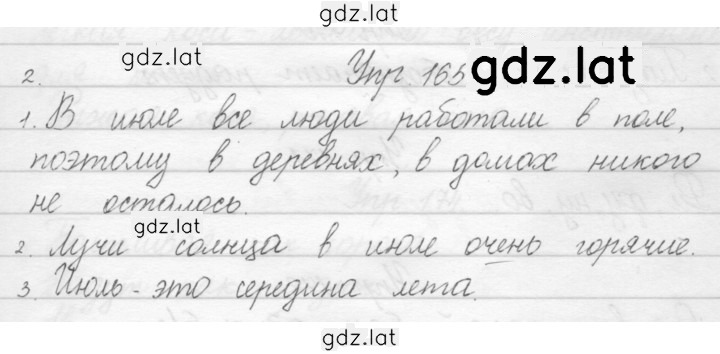 gdz.lat
gdz.lat
2. Упр 165 gdz.lat
1. В июле все люди работали в поле,
поэтому в деревнях, в домах никого
не осталось.
gdz.lat
2. Лучи солнца в июле очень горячие.
3. Июль - это середина лета.
gdz.lat